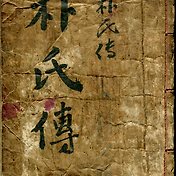 朴氏傳
朴氏传